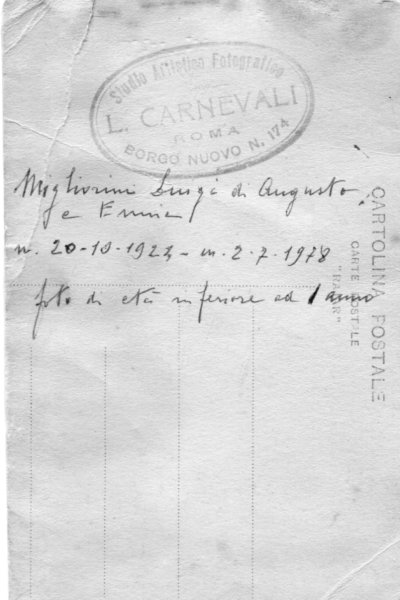 Studio Artistico Fotografico
L. CARNEVALI
ROMA
BORGO NUOVO N. 174
Migliorini Luigi di Augusto
e Emma
n. 20-10-1924 - m. 2-7-1978
foto di età inferiore ad 1 anno
CARTOLINA POSTALE
CARTE POSTALE